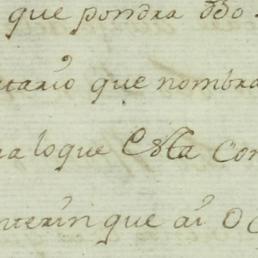 que pondra dho
tario que nombra
ra loque Esta Con
nterin que ai